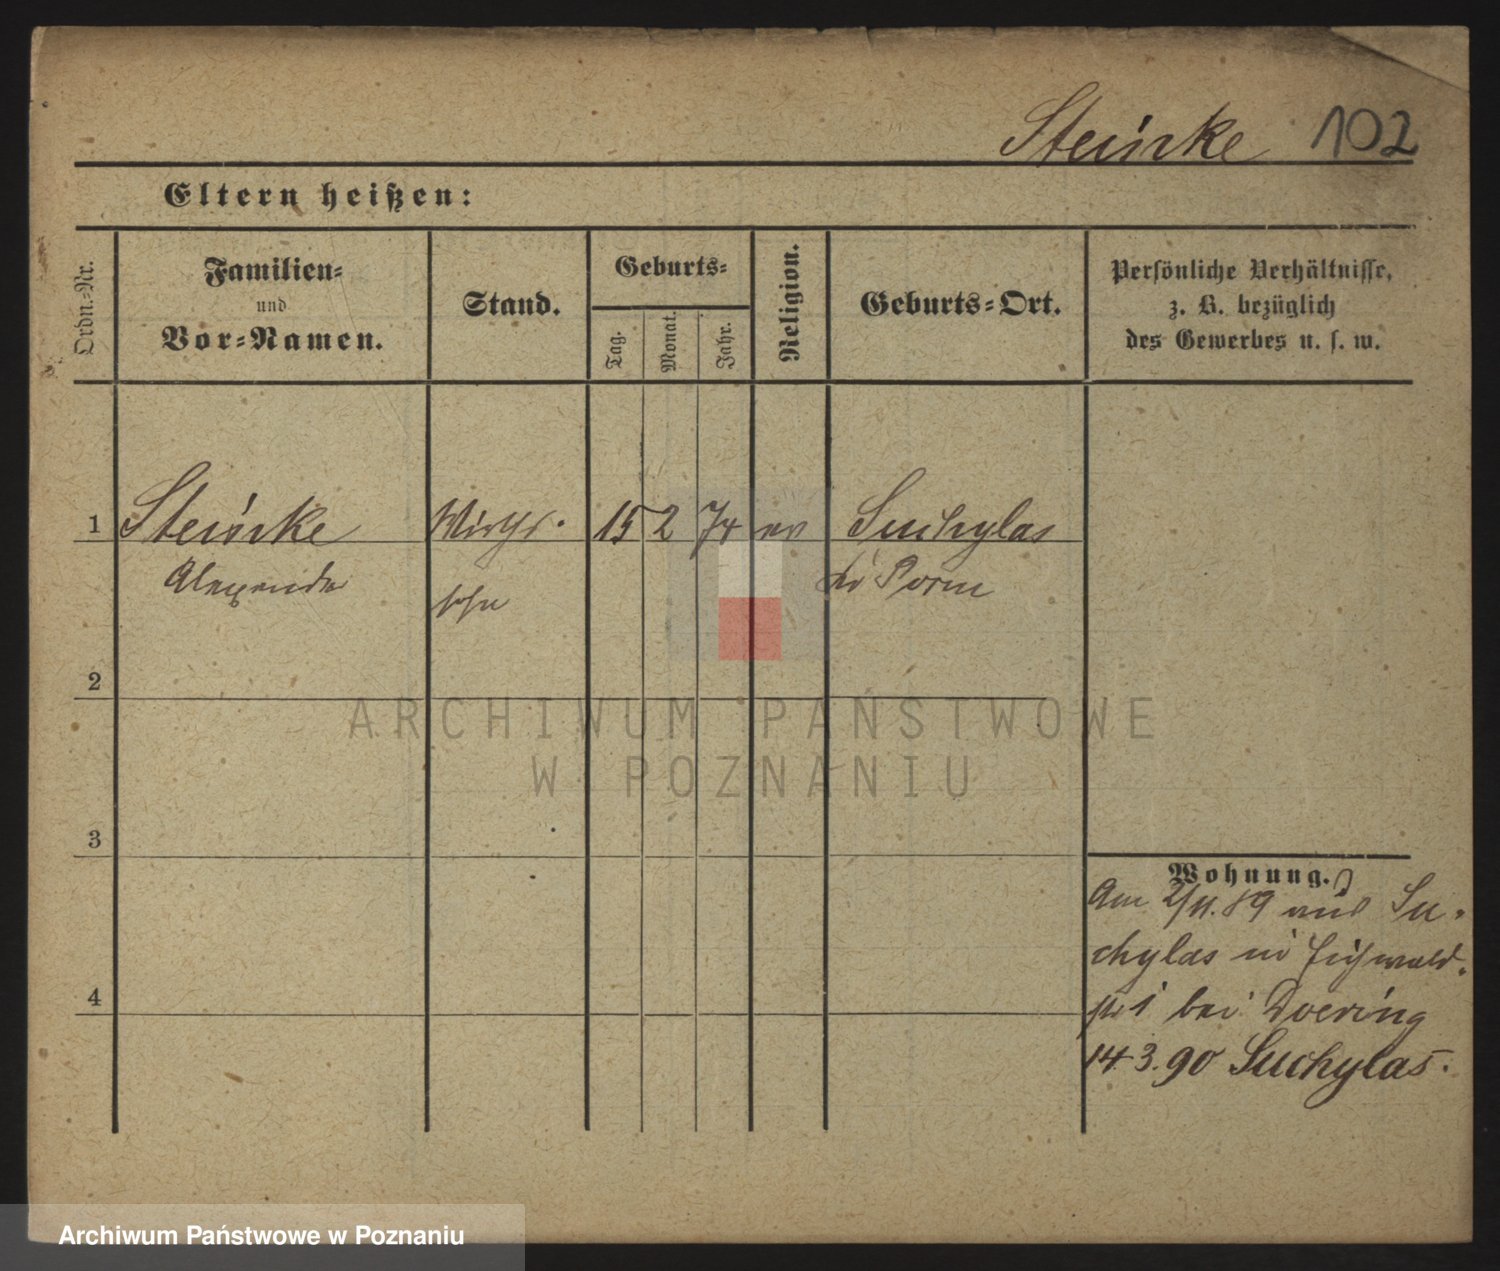 Steinke 102
Eltern heißen:
Ordn.-Nr.
Familien-
und
Vor-Namen.
Stand.
Geburts-
Tag.
Monat.
Jahr.
Religion.
Geburts-Ort.
Persönliche Verhältnisse,
z. B. bezüglich
des Gewerbes u. s. w.
1 Steinke Wirths. 15 2 74 ev Suchylas
Alexander sohn Kr Posen
2
3
4
ARCHIWUM PAŃSTWOWE
W POZNANIU
Wohnung.
Am 2/11.89 aus Su-
chylas in
bei Doering
14.3.90 Suchylas.
Archiwum Państwowe w Poznaniu